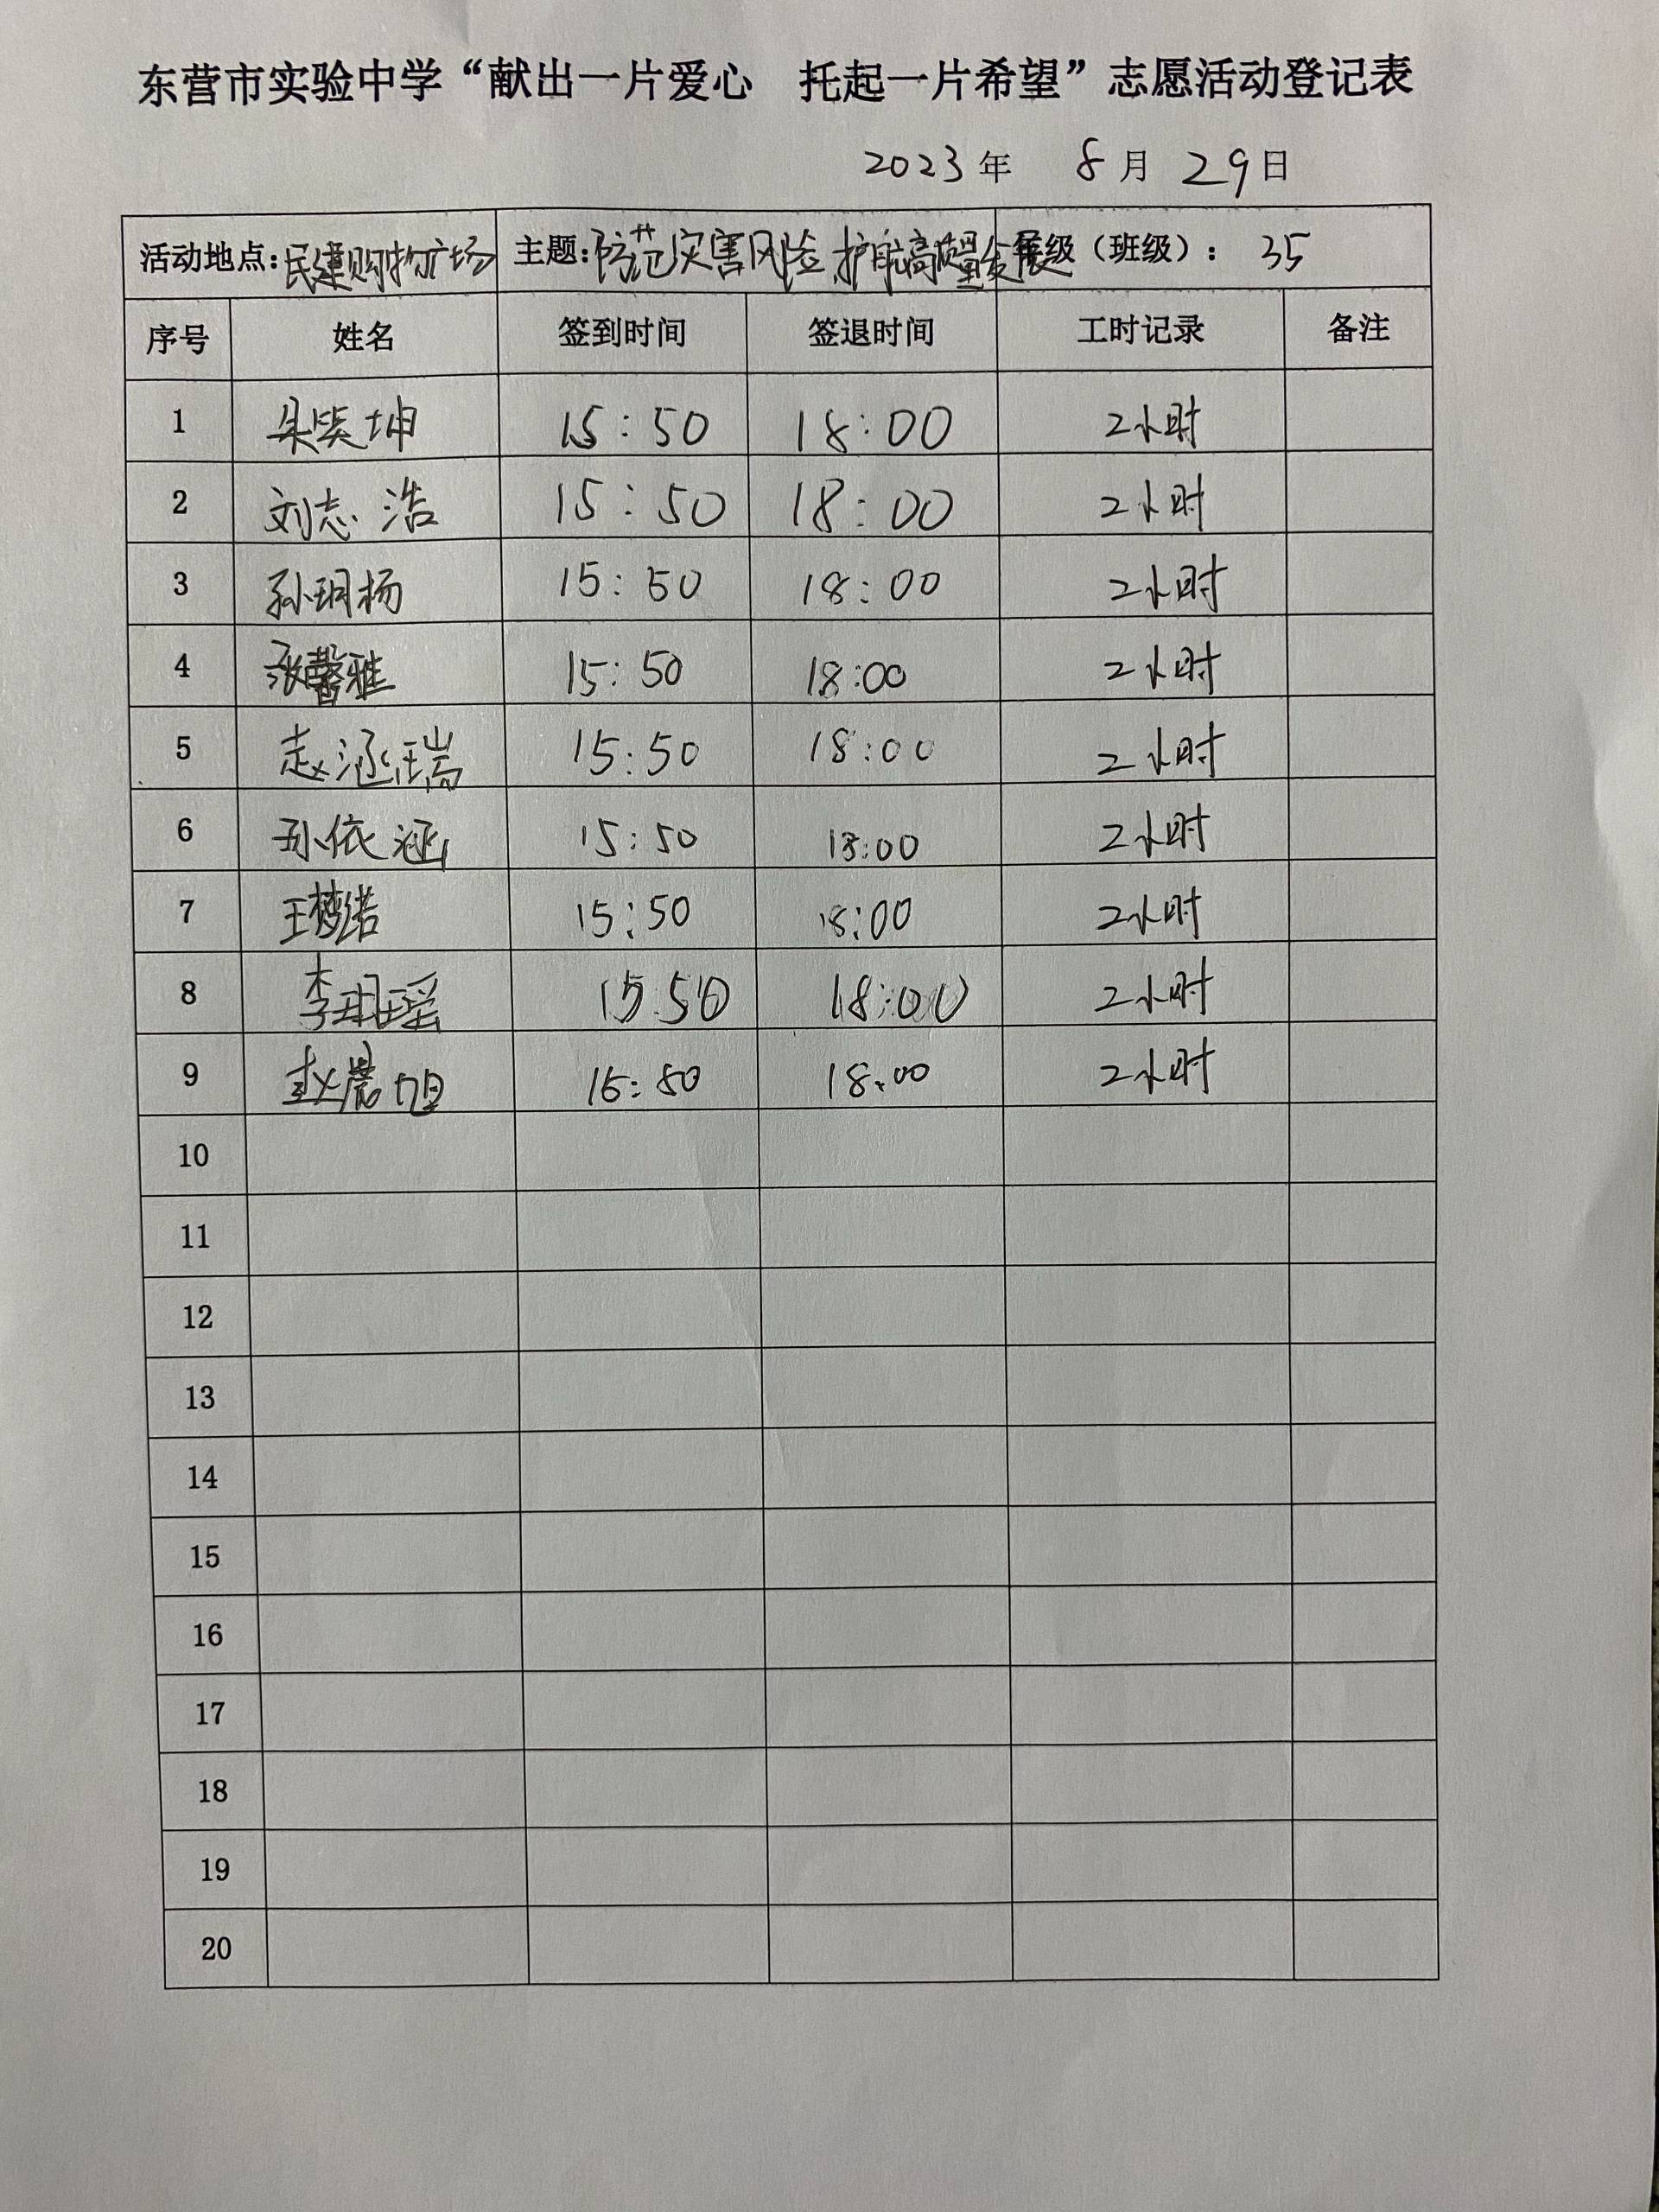 东营市实验中学“献出一片爱心 托起一片希望”志愿活动登记表
2023年 8月29日
活动地点:民建购物广场 主题:防范灾害风险 护航高质量发展 年级（班级）: 35
序号 姓名 签到时间 签退时间 工时记录 备注
1 朱笑坤 15:50 18:00 2小时
2 刘志浩 15:50 18:00 2小时
3 孙玥杨 15:50 18:00 2小时
4 张馨雅 15:50 18:00 2小时
5 赵涵瑞 15:50 18:00 2小时
6 孙依涵 15:50 18:00 2小时
7 王梦诺 15:50 18:00 2小时
8 李玥瑶 15:50 18:00 2小时
9 赵晨旭 15:50 18:00 2小时
10
11
12
13
14
15
16
17
18
19
20